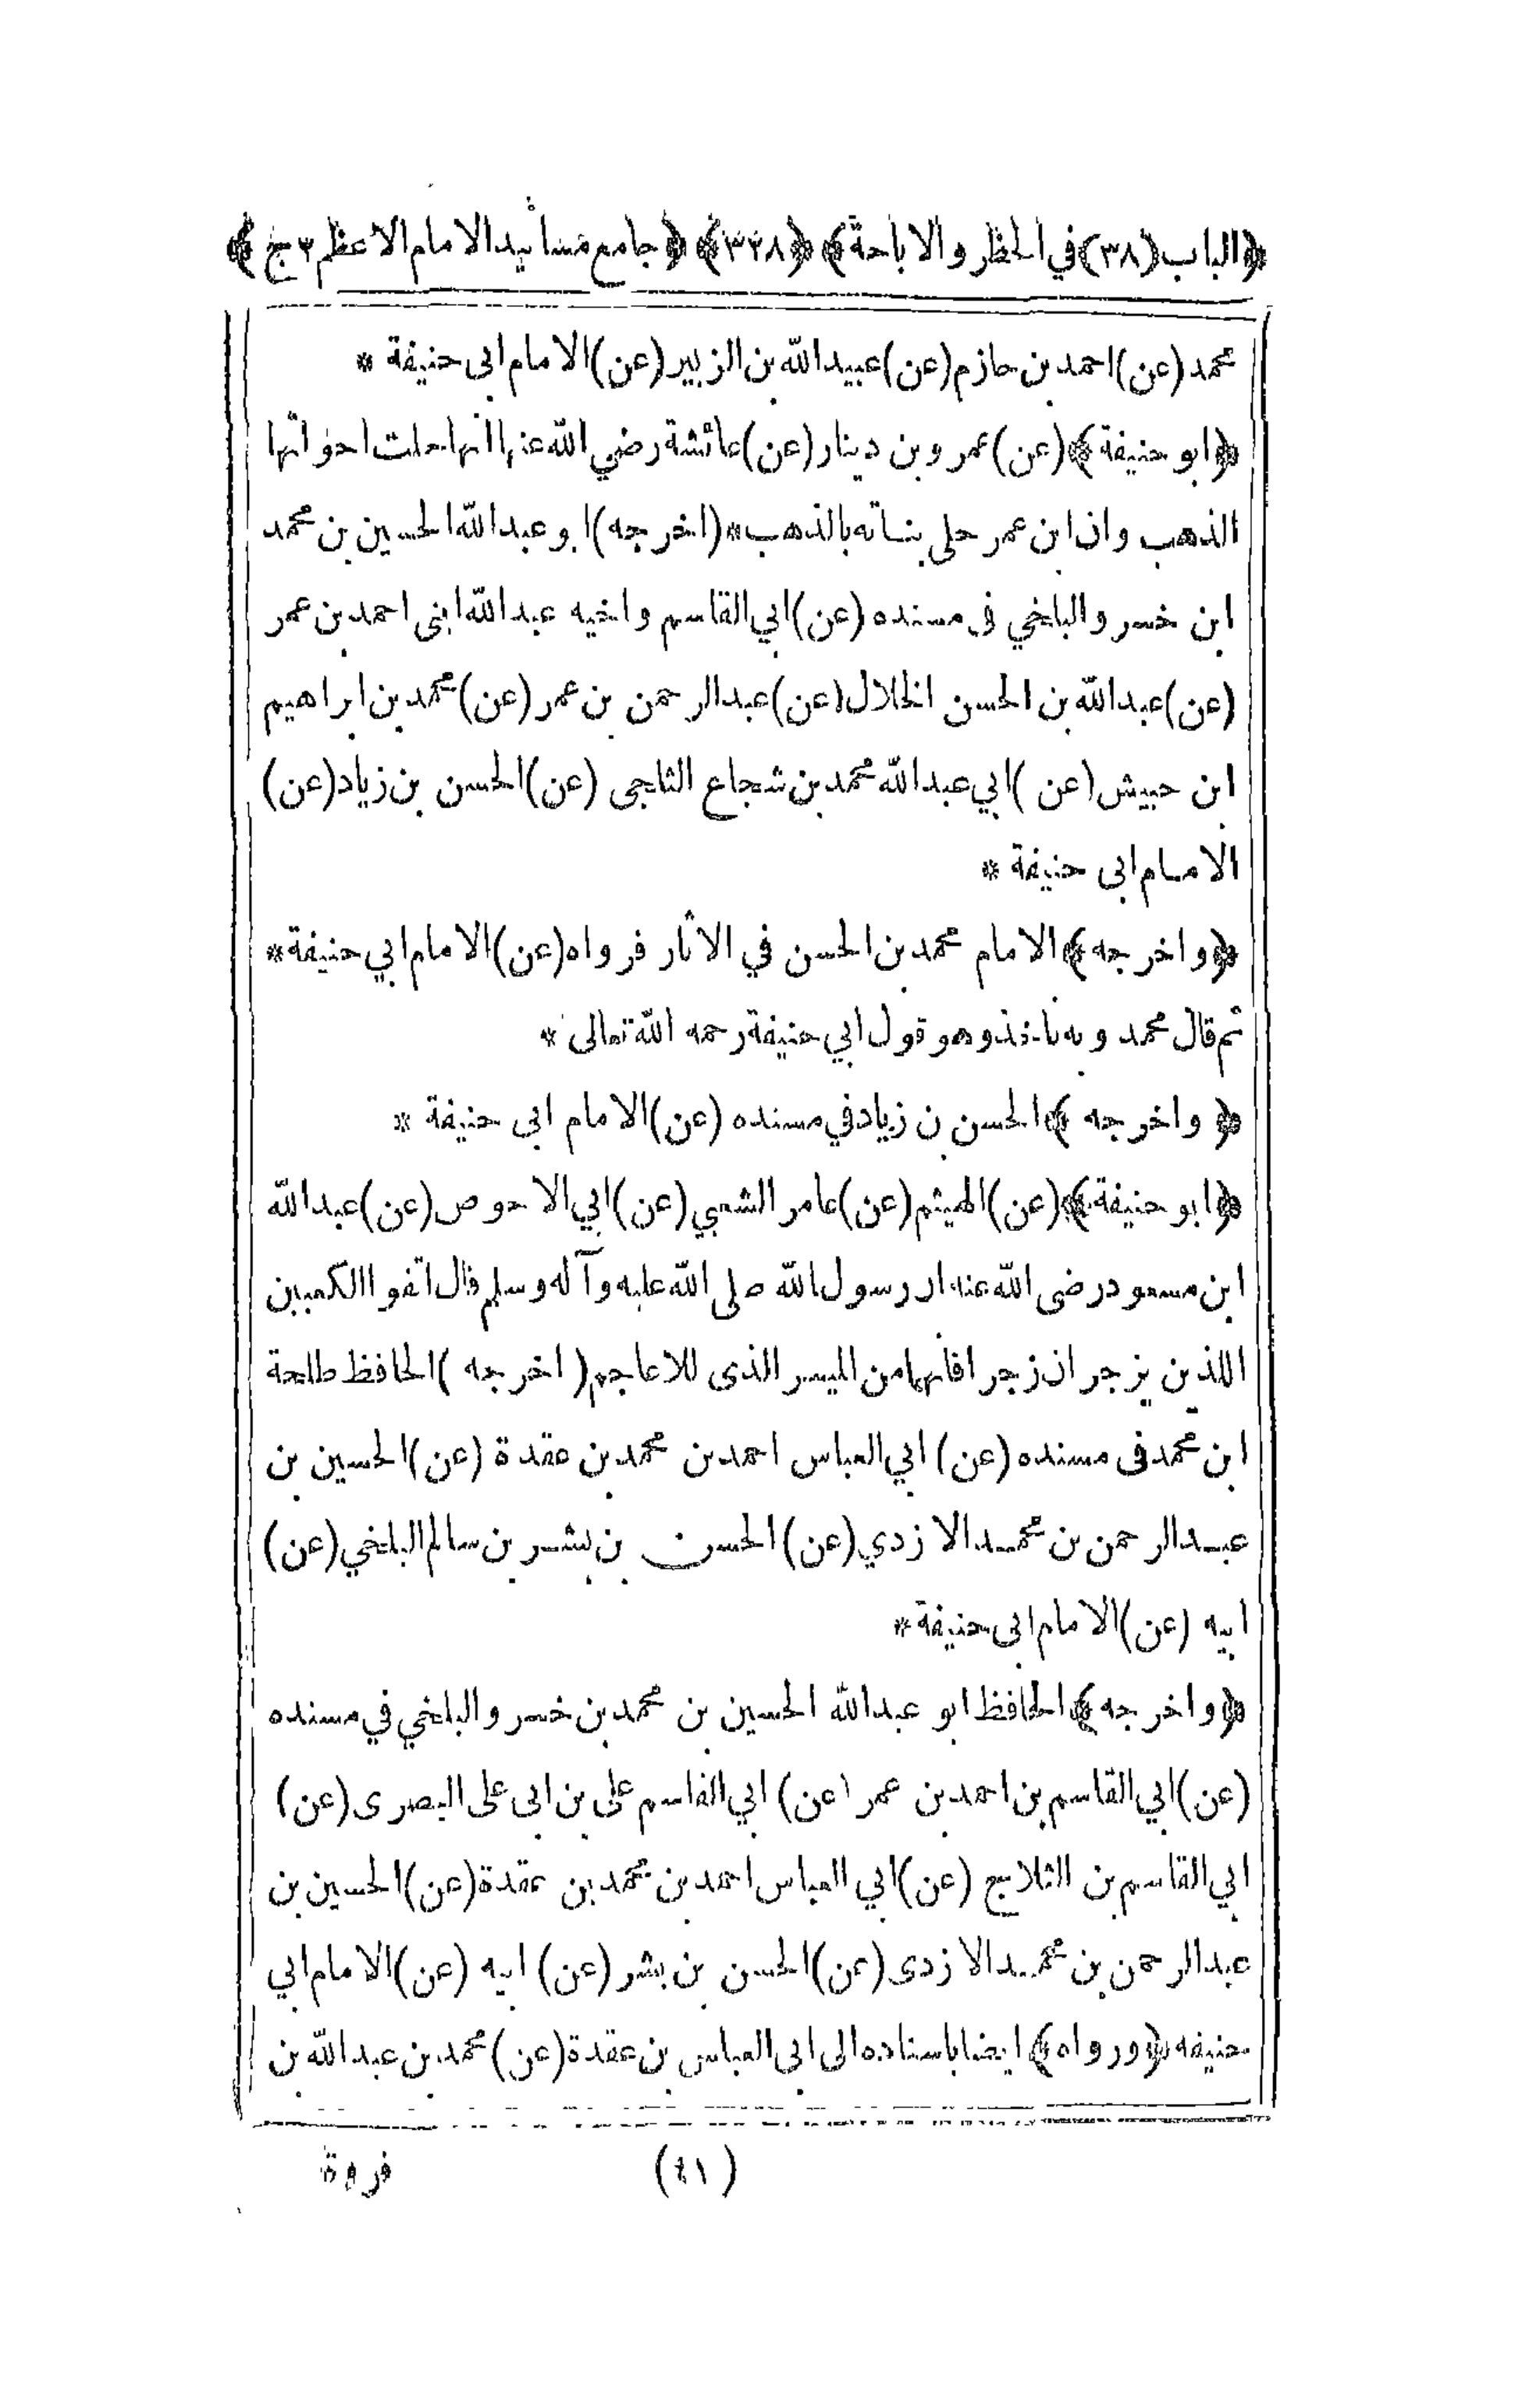 ﴿الباب (٣٨) في الحظر والاباحة﴾ ﴿٣٢٨﴾ ﴿جامع مسانيد الامام الاعظم ج ٢﴾
محمد (عن) احمد بن حازم (عن) عبيد الله بن الزبير (عن) الامام ابى حنيفة *
﴿ابو حنيفة﴾ (عن) عمرو بن دينار (عن) عائشة رضي الله عنها انها حلت اخواتها
الذهب وان ابن عمر حلى بناته بالذهب * (اخرجه) ابو عبد الله الحسين بن محمد
ابن خسرو البلخي فى مسنده (عن) ابي القاسم واخيه عبد الله ابنى احمد بن عمر
(عن) عبد الله بن الحسن الخلال (عن) عبد الرحمن بن عمر (عن) محمد بن ابراهيم
ابن حبيش (عن) ابي عبد الله محمد بن شجاع الثلجى (عن) الحسن بن زياد (عن)
الامام ابى حنيفة *
﴿واخرجه﴾ الامام محمد بن الحسن في الاثار فرواه (عن) الامام ابي حنيفة *
ثم قال محمد وبه ناخذ وهو قول ابي حنيفة رحمه الله تعالى *
﴿واخرجه﴾ الحسن بن زياد في مسنده (عن) الامام ابى حنيفة *
﴿ابو حنيفة﴾ (عن) الهيثم (عن) عامر الشعبي (عن) ابي الاحوص (عن) عبد الله
ابن مسعود رضى الله عنه ان رسول الله صلى الله عليه وآله وسلم قال اتقوا الكعبين
اللذين يزجران زجرا فانهما من الميسر الذى للاعاجم (اخرجه) الحافظ طلحة
ابن محمد فى مسنده (عن) ابي العباس احمد بن محمد بن عقدة (عن) الحسين بن
عبد الرحمن بن محمد الازدي (عن) الحسن بن بشر بن سالم البلخي (عن)
ابيه (عن) الامام ابى حنيفة *
﴿واخرجه﴾ الحافظ ابو عبد الله الحسين بن محمد بن خسرو البلخي في مسنده
(عن) ابي القاسم بن احمد بن عمر (عن) ابي القاسم على بن ابى على البصرى (عن)
ابي القاسم بن الثلاج (عن) ابي العباس احمد بن محمد بن عقدة (عن) الحسين بن
عبد الرحمن بن محمد الازدى (عن) الحسن بن بشر (عن) ابيه (عن) الامام ابي
حنيفه ﴿ورواه﴾ ايضا باسناده الى ابى العباس بن عقدة (عن) محمد بن عبد الله بن
(٤١) فروة